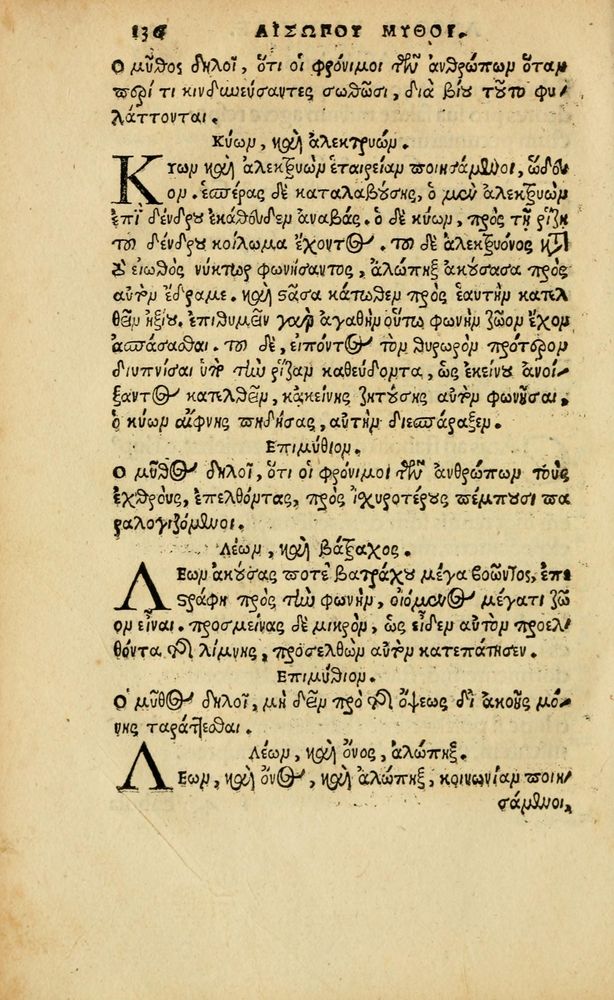 136 ΑΙΣΩΠΟΥ ΜΥΘΟΙ.
Ο μῦθος δηλοῖ, ὅτι οἱ φρόνιμοι τῶν ἀνθρώπων ὅταν
περί τι κινδυνεύσαντες σωθῶσι, διὰ βίου τοῦτο φυ-
λάττονται.
Κύων, καὶ ἀλεκτρυών.
ΚΥων καὶ ἀλεκτρυὼν ἑταιρείαν ποιησάμενοι, ὥδευ-
ον. ἑσπέρας δὲ καταλαβούσης, ὁ μὲν ἀλεκτρυὼν
ἐπὶ δένδρου ἐκάθευδεν ἀναβάς. ὁ δὲ κύων, πρὸς τῇ ῥίζῃ
τοῦ δένδρου κοίλωμα ἔχοντος. τοῦ δὲ ἀλεκτρυόνος κατὰ
τὸ εἰωθὸς νύκτωρ φωνήσαντος, ἀλώπηξ ἀκούσασα πρὸς
αὐτὸν ἔδραμε. καὶ στᾶσα κάτωθεν πρὸς ἑαυτὴν κατελ
θεῖν ἠξίου. ἐπιθυμεῖν γὰρ ἀγαθὴν οὕτω φωνὴν ζῶον ἔχον
ἀσπάσασθαι. τοῦ δὲ, εἰπόντος τὸν θυρωρὸν πρότερον
διυπνίσαι ὑπὸ τὴν ῥίζαν καθεύδοντα, ὡς ἐκείνου ἀνοί-
ξαντος κατελθεῖν, κἀκείνης ζητούσης αὐτὸν φωνῆσαι.
ὁ κύων αἴφνης πηδήσας, αὐτὴν διεσπάραξεν.
Επιμύθιον.
Ο μῦθος δηλοῖ, ὅτι οἱ φρόνιμοι τῶν ἀνθρώπων τοὺς
ἐχθροὺς, ἐπελθόντας, πρὸς ἰσχυροτέρους πέμπουσι πα
ραλογιζόμενοι.
Λέων, καὶ βάτραχος.
ΛΕων ἀκούσας ποτὲ βατράχου μέγα βοῶντος, ἐπε
στράφη πρὸς τὴν φωνὴν, οἰόμενος μέγα τι ζῶ
ον εἶναι. προσμείνας δὲ μικρὸν, ὡς εἶδεν αὐτὸν προελ
θόντα τῆς λίμνης, προσελθὼν αὐτὸν κατεπάτησεν.
Επιμύθιον.
Ο μῦθος δηλοῖ, μὴ δεῖν πρὸ τῆς ὄψεως δι ἀκοῆς μό-
νης ταράττεσθαι.
Λέων, καὶ ὄνος, ἀλώπηξ.
ΛΕων, καὶ ὄνος, καὶ ἀλώπηξ, κοινωνίαν ποιη-
σάμενοι,